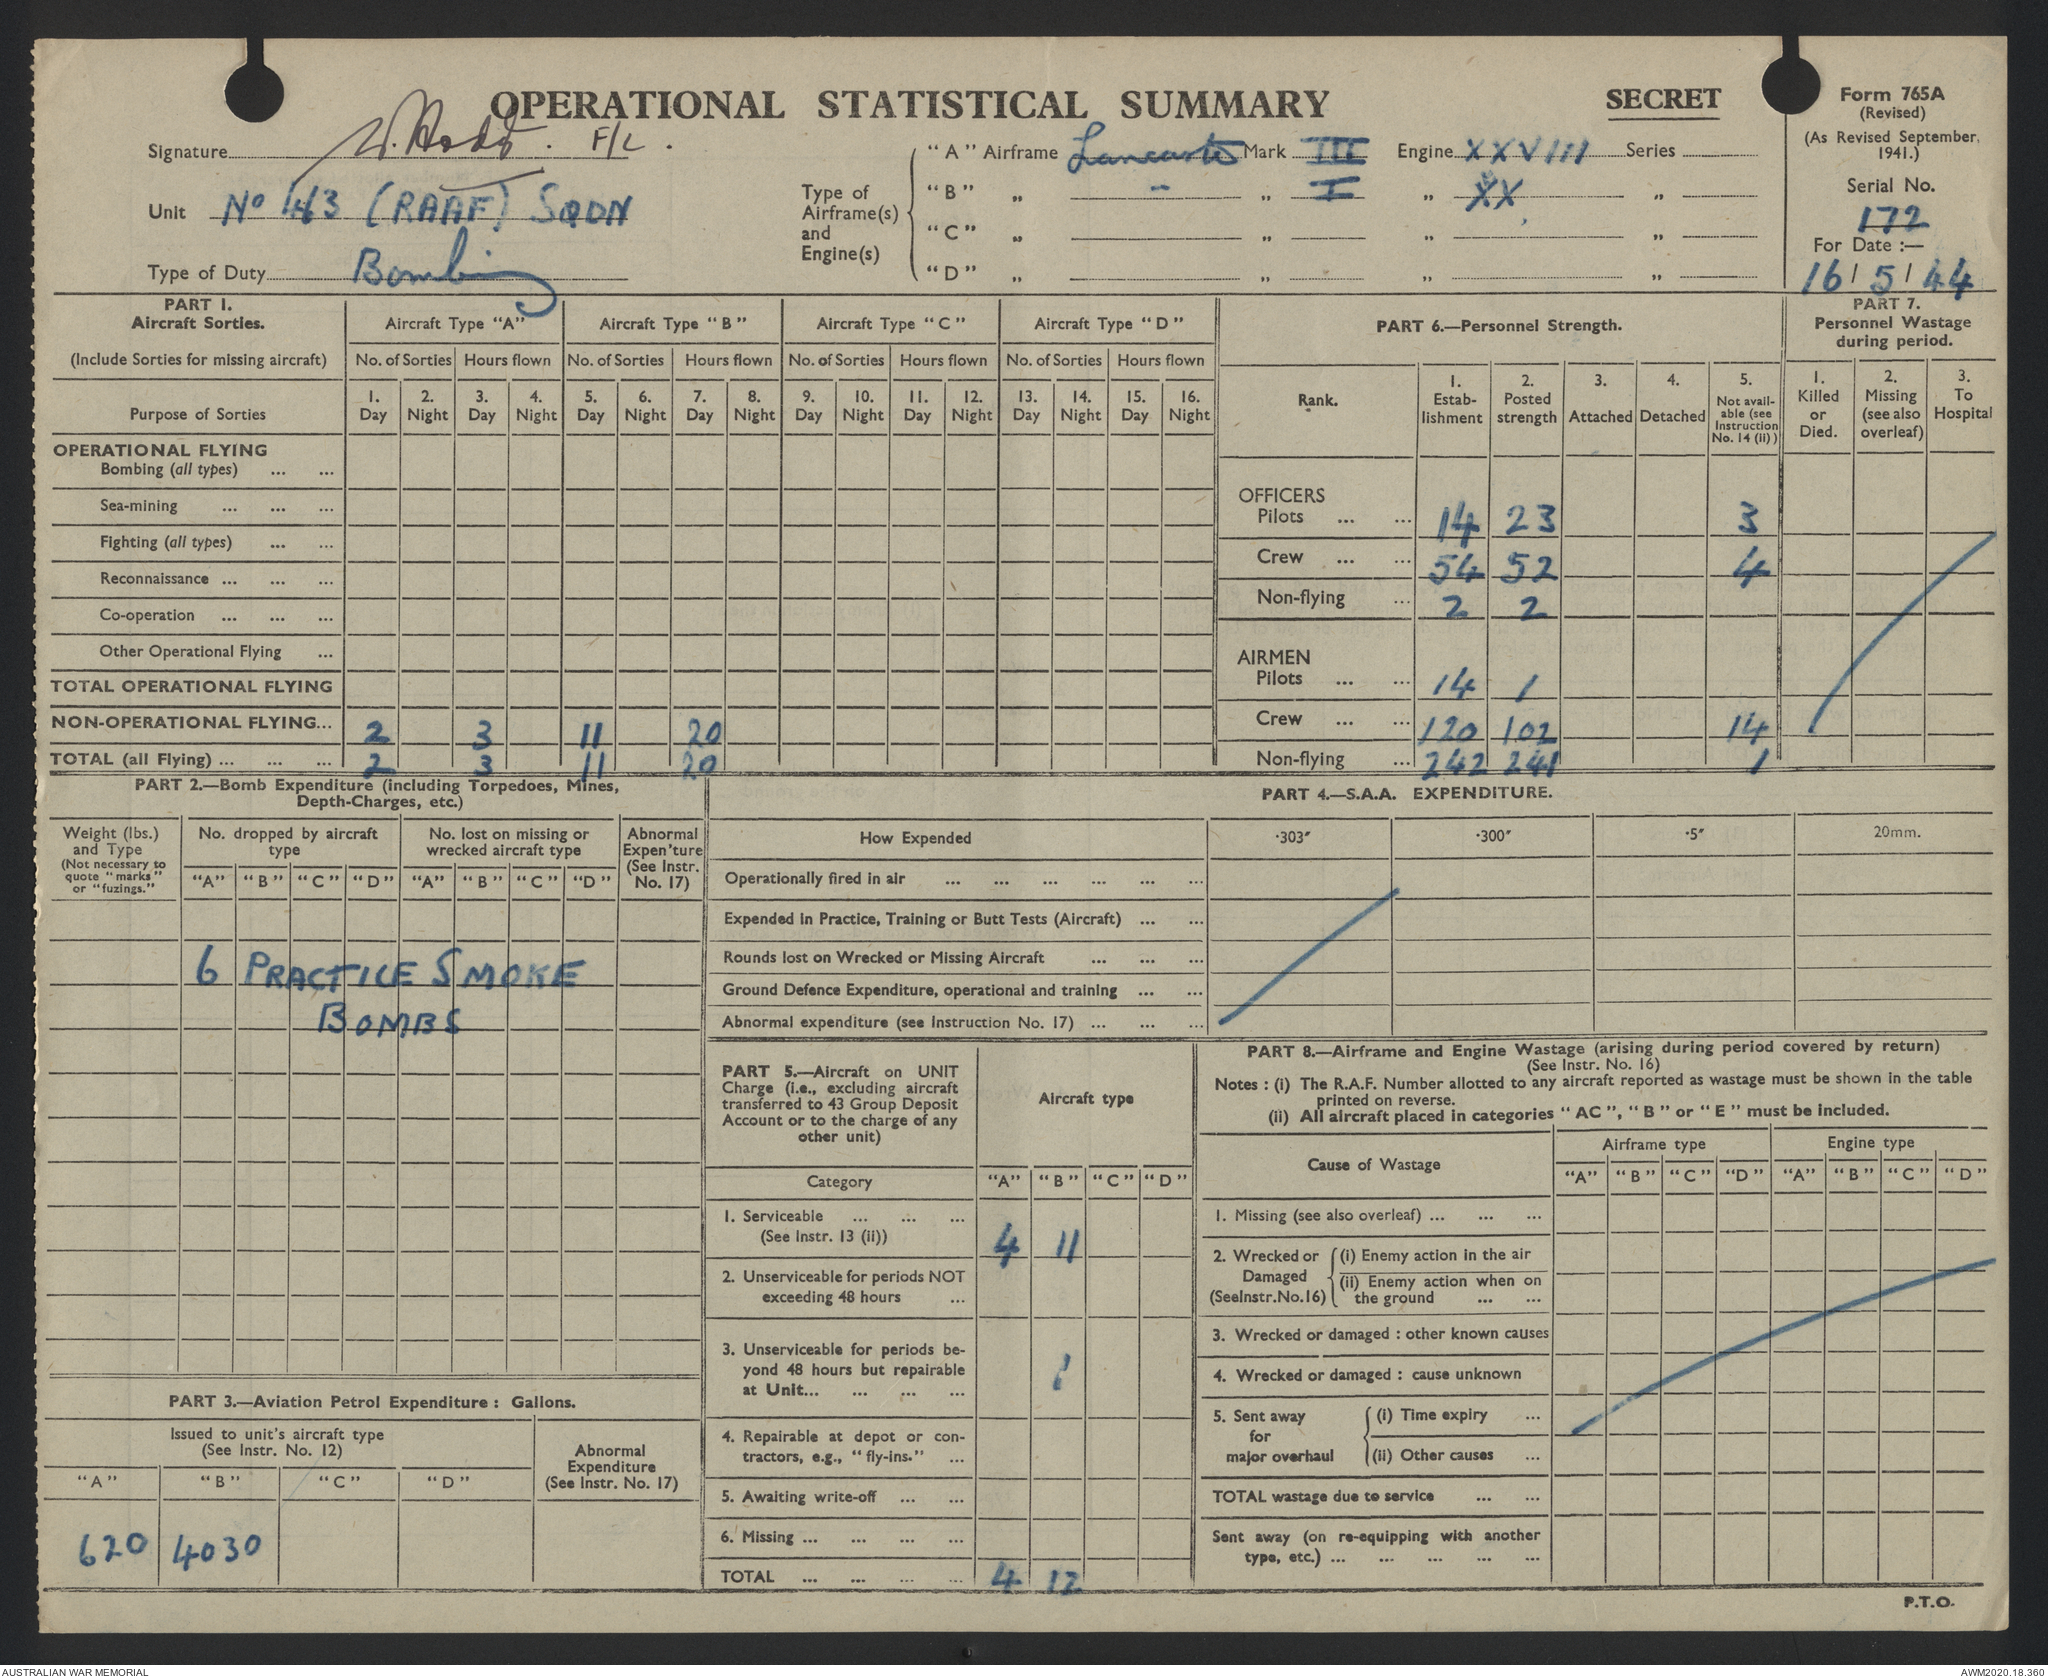 OPERATIONAL STATISTICAL SUMMARY
SECRET
Form 765A
(Revised)
(As Revised September, 1941.)
Serial No.
172
For Date :—
16/5/44
Signature F/L.
Unit No 463 (RAAF) SQDN
Type of Duty Bombing
Type of Airframe(s) and Engine(s)
"A" Airframe Lancaster Mark III Engine XXVIII Series
"B" „ - „ I „ XX „
"C" „ „ „ „
"D" „ „ „ „
PART 1.
Aircraft Sorties.
(Include Sorties for missing aircraft)
Purpose of Sorties
Aircraft Type "A" Aircraft Type "B" Aircraft Type "C" Aircraft Type "D"
No. of Sorties Hours flown No. of Sorties Hours flown No. of Sorties Hours flown No. of Sorties Hours flown
1. 2. 3. 4. 5. 6. 7. 8. 9. 10. 11. 12. 13. 14. 15. 16.
Day Night Day Night Day Night Day Night Day Night Day Night Day Night Day Night
OPERATIONAL FLYING
Bombing (all types) ... ...
Sea-mining ... ... ...
Fighting (all types) ... ...
Reconnaissance ... ... ...
Co-operation ... ... ...
Other Operational Flying ...
TOTAL OPERATIONAL FLYING
NON-OPERATIONAL FLYING... 2 3 11 20
TOTAL (all Flying) ... ... ... 2 3 11 20
PART 6.—Personnel Strength.
Rank.
1. Estab-lishment
2. Posted strength
3. Attached
4. Detached
5. Not avail-able (see Instruction No. 14 (ii))
OFFICERS
Pilots ... ... 14 23 3
Crew ... ... 54 52 4
Non-flying ... 2 2
AIRMEN
Pilots ... ... 14 1
Crew ... ... 120 102 14
Non-flying ... 242 241 1
PART 7.
Personnel Wastage during period.
1. Killed or Died.
2. Missing (see also overleaf)
3. To Hospital
PART 2.—Bomb Expenditure (including Torpedoes, Mines, Depth-Charges, etc.)
Weight (lbs.) and Type
(Not necessary to quote "marks" or "fuzings."
No. dropped by aircraft type
No. lost on missing or wrecked aircraft type
Abnormal Expen'ture (See Instr. No. 17)
"A" "B" "C" "D" "A" "B" "C" "D"
6 PRACTICE SMOKE
BOMBS
PART 3.—Aviation Petrol Expenditure : Gallons.
Issued to unit's aircraft type
(See Instr. No. 12)
Abnormal Expenditure (See Instr. No. 17)
"A" "B" "C" "D"
620 4030
PART 4.—S.A.A. EXPENDITURE.
How Expended ·303″ ·300″ ·5″ 20mm.
Operationally fired in air ... ... ... ... ... ...
Expended in Practice, Training or Butt Tests (Aircraft) ... ...
Rounds lost on Wrecked or Missing Aircraft ... ... ...
Ground Defence Expenditure, operational and training ... ...
Abnormal expenditure (see Instruction No. 17) ... ... ...
PART 5.—Aircraft on UNIT
Charge (i.e., excluding aircraft
transferred to 43 Group Deposit
Account or to the charge of any
other unit)
Aircraft type
Category "A" "B" "C" "D"
1. Serviceable ... ... ...
(See Instr. 13 (ii)) 4 11
2. Unserviceable for periods NOT
exceeding 48 hours ...
3. Unserviceable for periods be-
yond 48 hours but repairable
at Unit... ... ... ... 1
4. Repairable at depot or con-
tractors, e.g., "fly-ins." ...
5. Awaiting write-off ... ...
6. Missing ... ... ... ...
TOTAL ... ... ... ... 4 12
PART 8.—Airframe and Engine Wastage (arising during period covered by return)
(See Instr. No. 16)
Notes : (i) The R.A.F. Number allotted to any aircraft reported as wastage must be shown in the table
printed on reverse.
(ii) All aircraft placed in categories "AC", "B" or "E" must be included.
Cause of Wastage
Airframe type Engine type
"A" "B" "C" "D" "A" "B" "C" "D"
1. Missing (see also overleaf) ... ... ...
2. Wrecked or Damaged (SeeInstr.No.16)
(i) Enemy action in the air
(ii) Enemy action when on
the ground ... ...
3. Wrecked or damaged : other known causes
4. Wrecked or damaged : cause unknown
5. Sent away for major overhaul
(i) Time expiry ...
(ii) Other causes ...
TOTAL wastage due to service ... ...
Sent away (on re-equipping with another
type, etc.) ... ... ... ... ...
P.T.O.
AUSTRALIAN WAR MEMORIAL
AWM2020.18.360